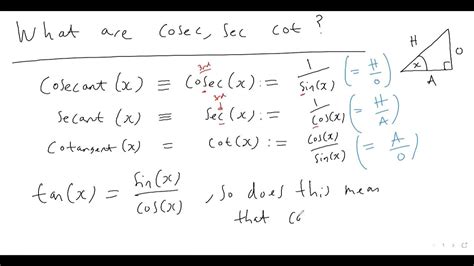 What are cosec, sec cot?
Cosecant(x) ≡ Cosec(x) := 1/sin(x) (= H/O)
3rd
Secant(x) ≡ Sec(x) := 1/cos(x) (= H/A)
3rd
Cotangent(x) ≡ Cot(x) := cos(x)/sin(x) (= A/O)
H O x A
tan(x) = sin(x)/cos(x), so does this mean
that co